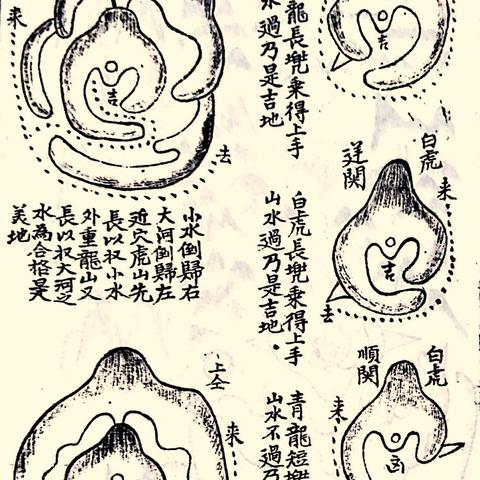 吉
龍長兠乘得上手
水過乃是吉地
来
吉
去
白虎
逆関
来
吉
去
白虎長兠乘得上手
山水過乃是吉地
小水倒歸右
大河倒歸左
近穴虎山先
長以収小水
外重龍山又
長以収大河之
水為合格是
美地
白虎
順関
来
凶
青龍短兠
山水不過乃
上仝
来